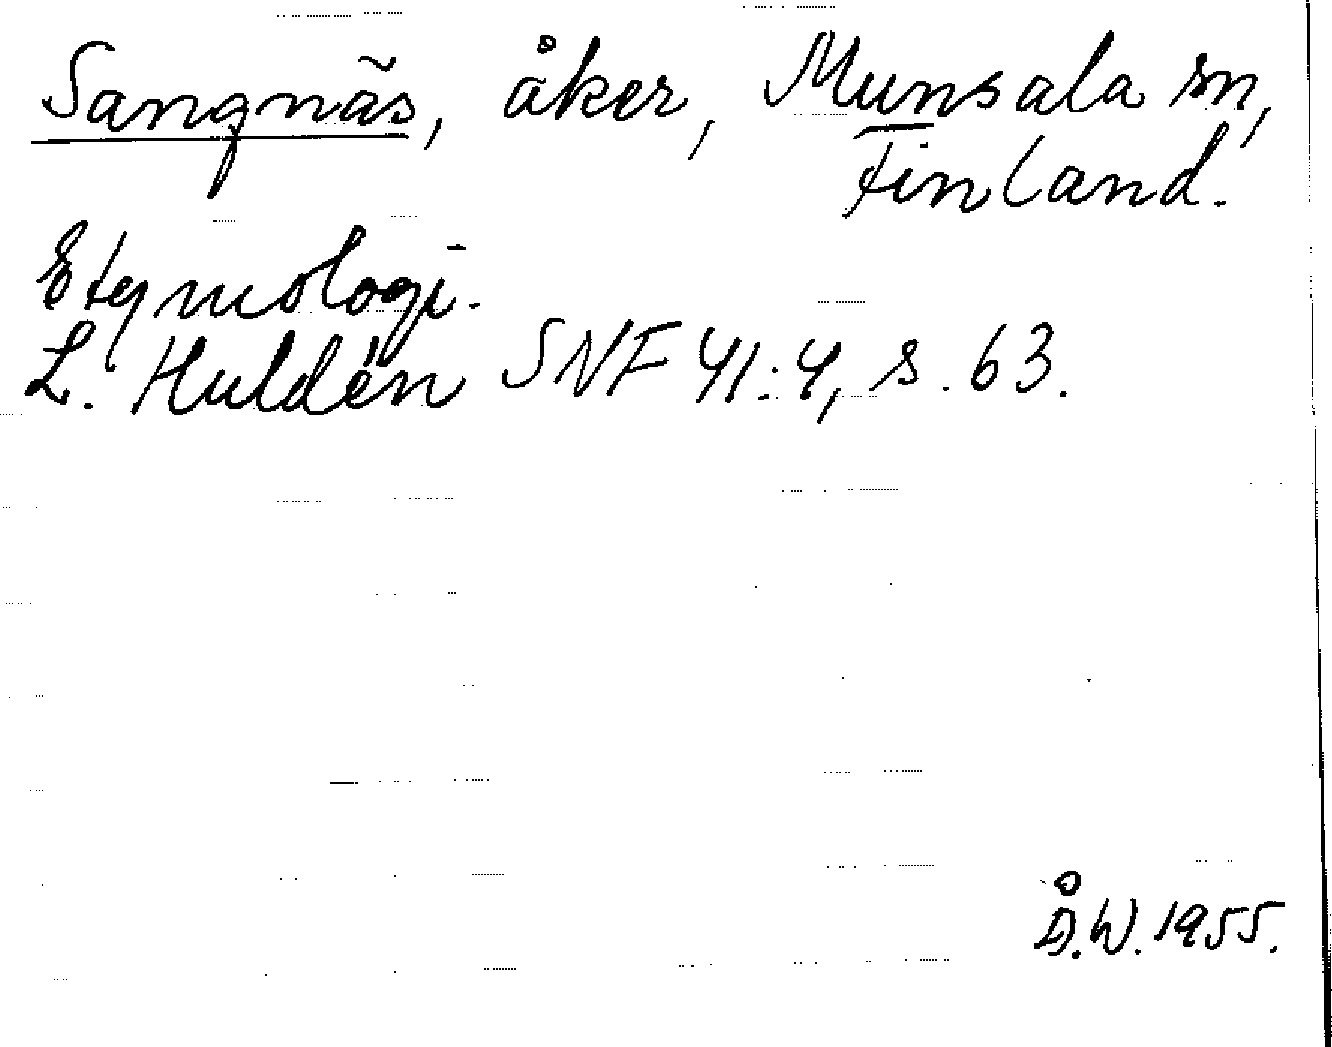 Sangnäs, åker, Munsala sn,
Finland.
Etymologi.
L. Huldén SNF 41:4, s. 63.
Å.W. 1955.